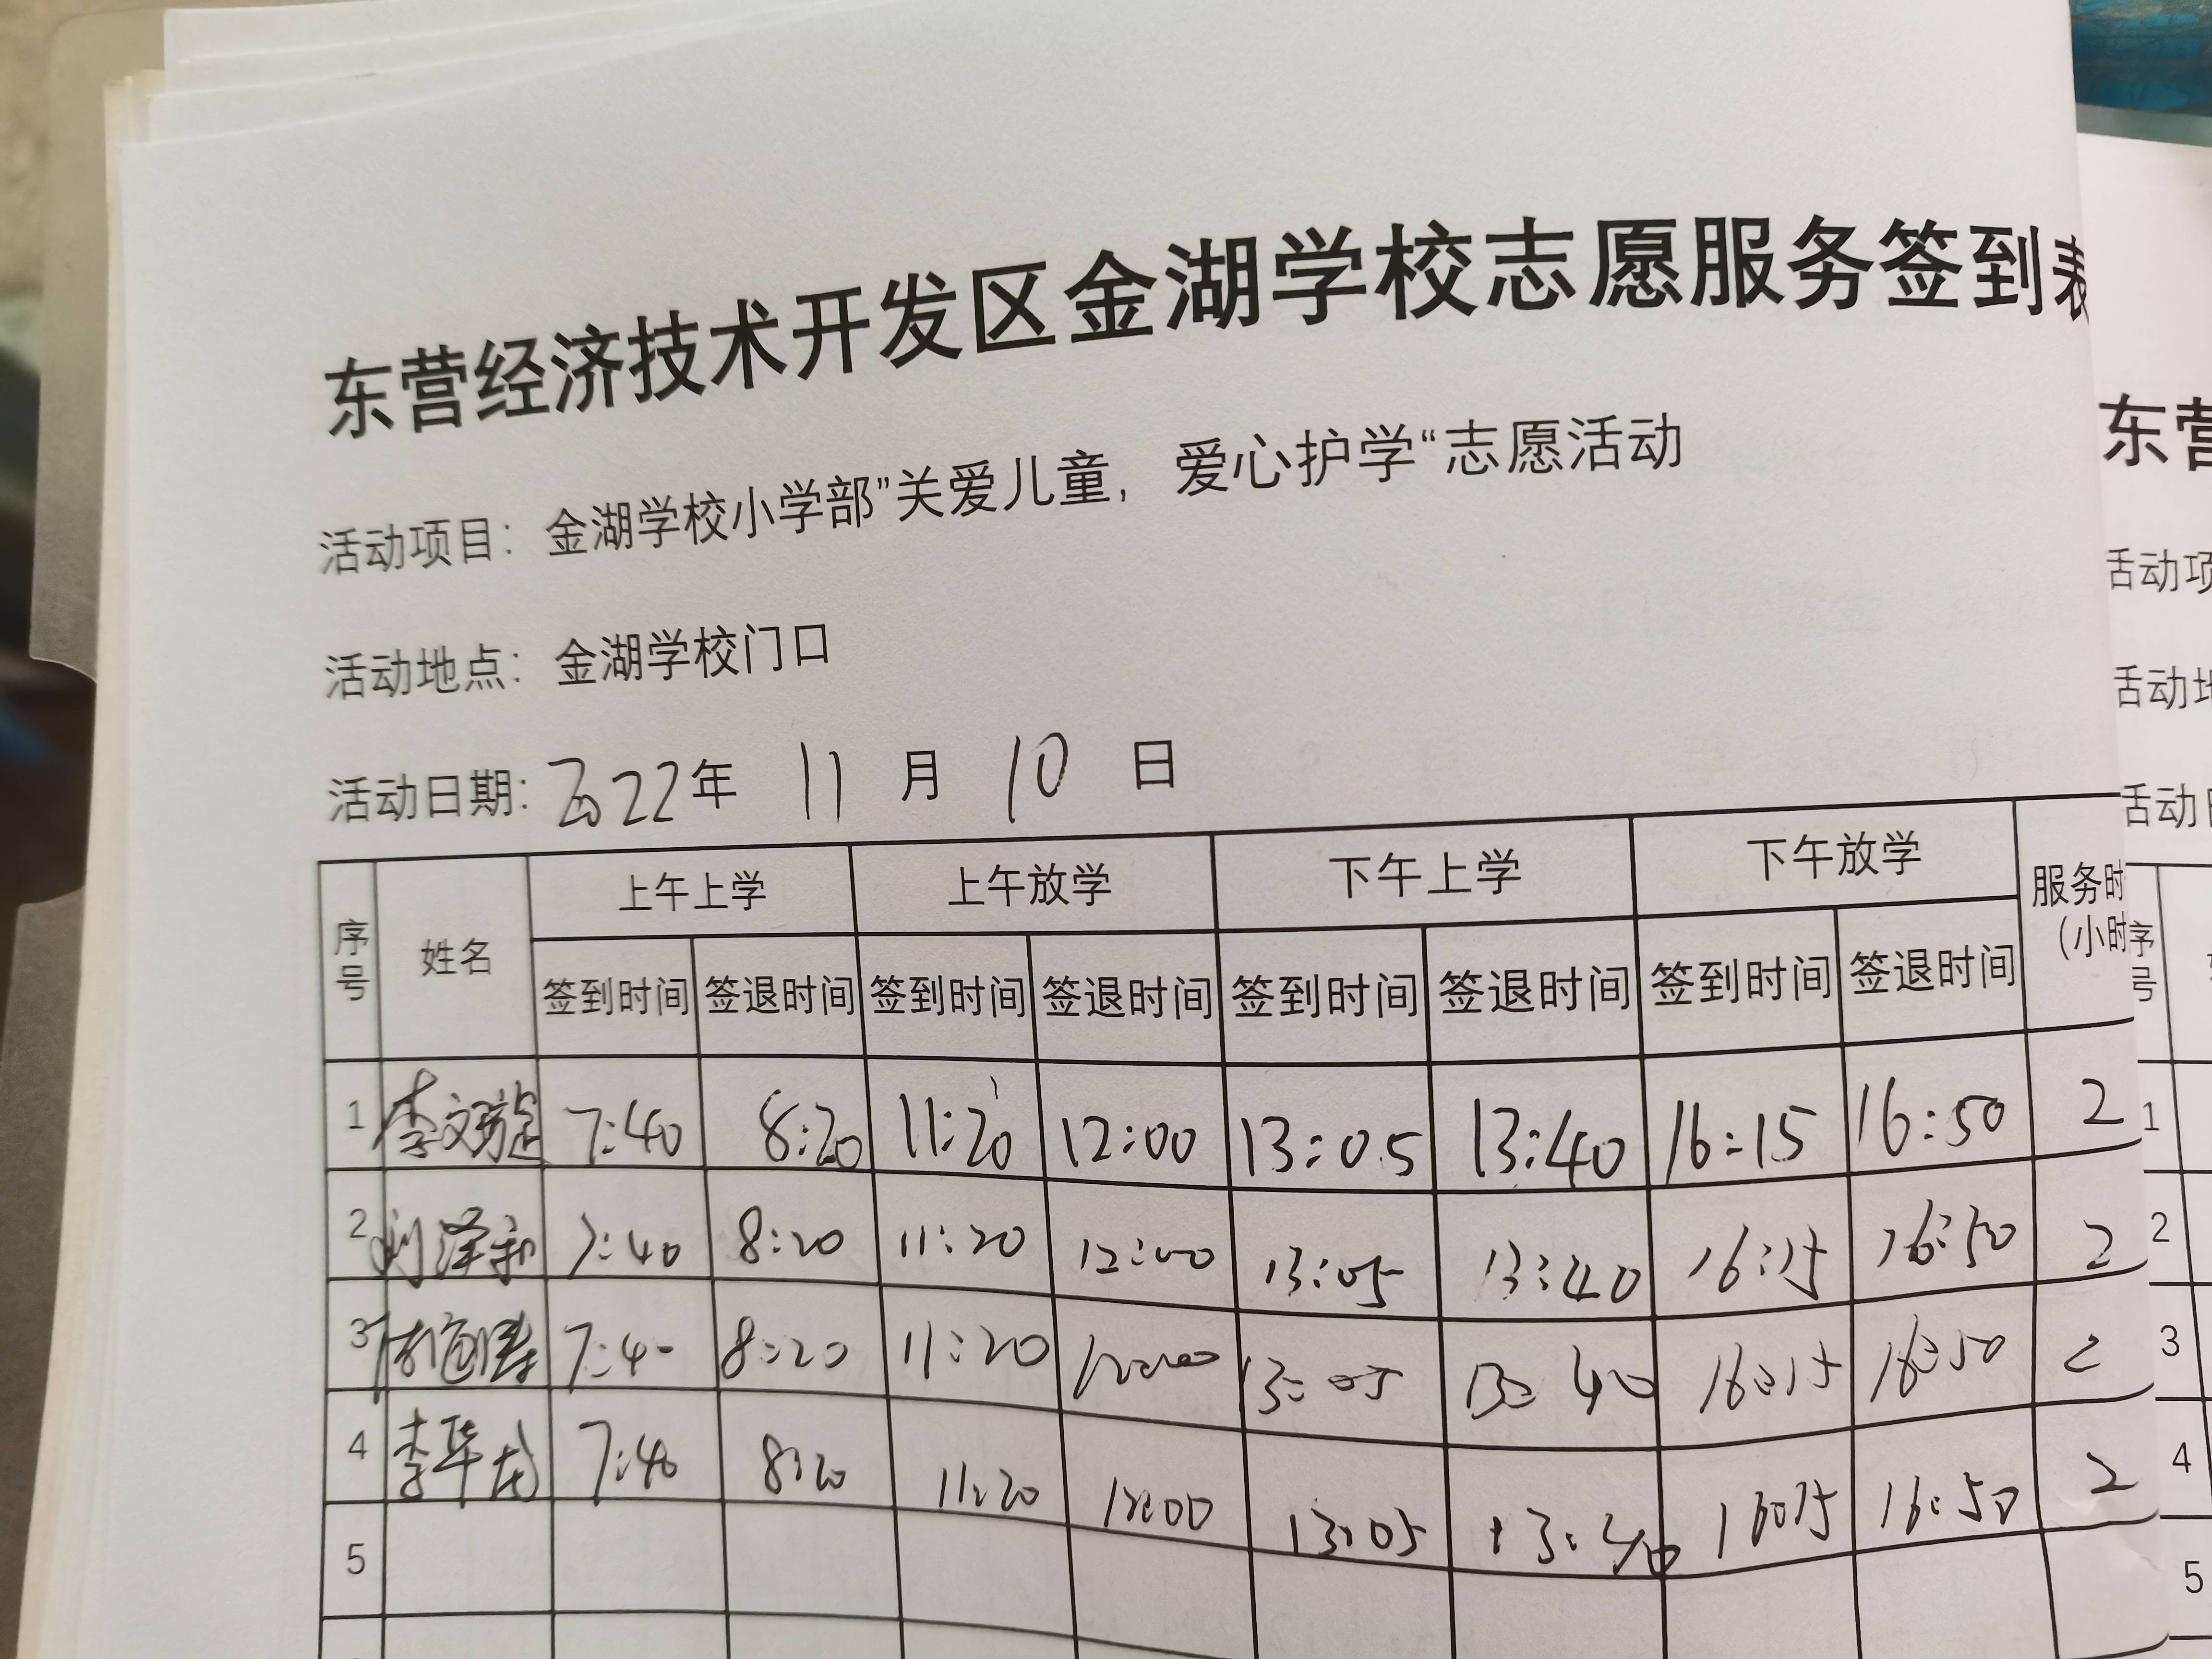 东营经济技术开发区金湖学校志愿服务签到表
活动项目：金湖学校小学部”关爱儿童，爱心护学“志愿活动
活动地点：金湖学校门口
活动日期：2022年 11 月 10 日
序号 姓名 上午上学 上午放学 下午上学 下午放学 服务时
(小时
签到时间 签退时间 签到时间 签退时间 签到时间 签退时间 签到时间 签退时间
1 李文 7:40 8:20 11:20 12:00 13:05 13:40 16:15 16:50 2
2 刘泽和 7:40 8:20 11:20 12:00 13:05 13:40 16:15 16:50 2
3 7:4- 8:20 11:20 12:00 13:05 13:40 16:15 16:50 2
4 李华龙 7:40 8:20 11:20 12:00 13:05 13:40 16:15 16:50 2
5
东营
活动项
活动地
活动日
序号
1
2
3
4
5